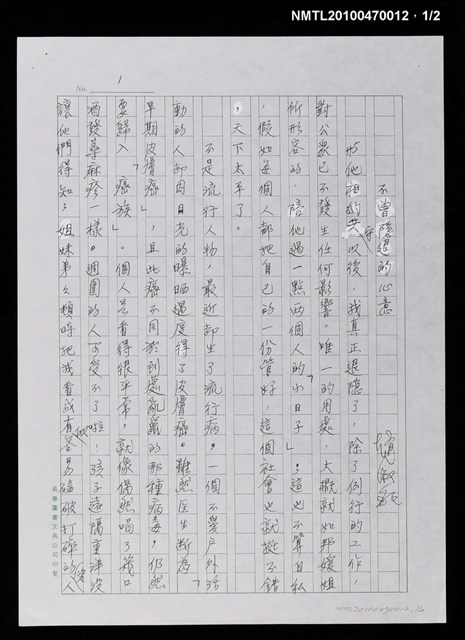 NMTL20100470012，1/2
No. 1
不曾隱退的心意
與他相約共守以後，我真正退隱了，除了例行的工作，
對公眾已不發生任何影響。唯一的用處，大概就如邦媛姐
所形容的，陪他過一點兩個人的「小日子」；這也不算自私
，假如每個人都把自己的一份管好，這個社會也就挺不錯
，天下太平了。
不是流行人物，最近卻生了流行病，一個不愛戶外活
動的人卻因日光的曝晒過度得了皮膚癌。雖然医生斷為「
早期皮膚癌」，且此癌不同於到處亂竄的那種病毒，仍然
要歸入「癌族」。個人是看得很平常，就像偶然喝了幾口
酒發蕁麻疹一樣。週圍的人可受不了啦，孩子遠隔重洋沒
讓他們得知；姐妹弟久頓時把我看成有如容易碰破打碎的人
長春圖書文具公司印製
NMTL20100470012, 1/2